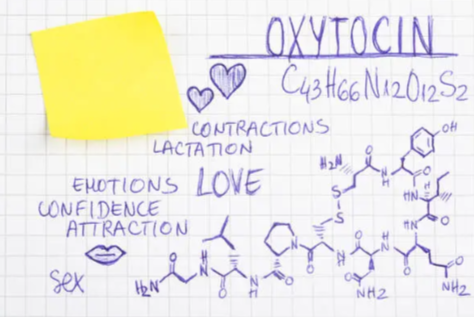 OXYTOCIN
C43H66N12O12S2
CONTRACTIONS
LACTATION
EMOTIONS LOVE
CONFIDENCE
ATTRACTION
sex
OH
H2N
O
NH
HN
O
S
S
O
HN
NH
O
O
H2N
O
NH
O
N
H
O
N
O
NH
O
NH2
O
NH2